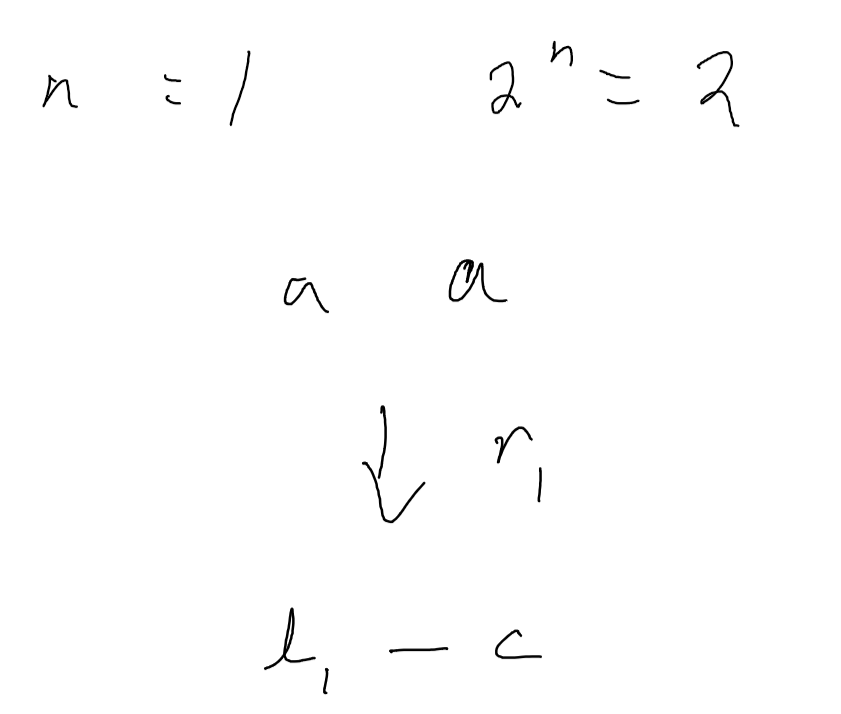 n = 1 2ⁿ = 2
a a
↓ r₁
l₁ — c